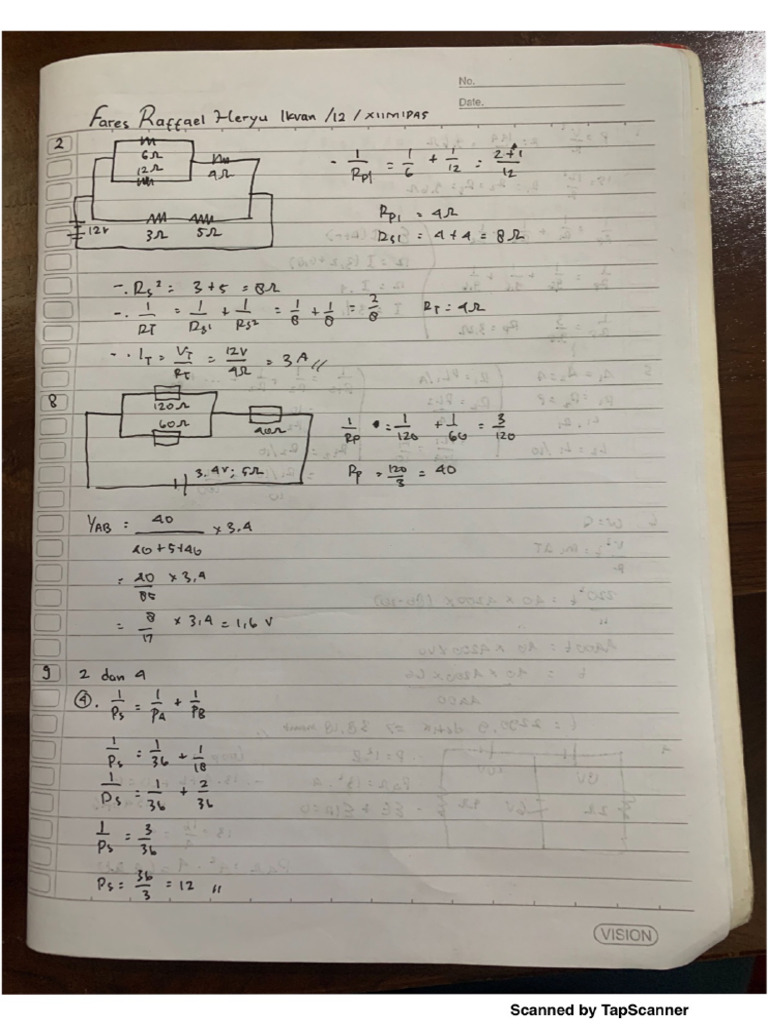 No.
Date.
Fares Raffael Heryu Ikvan /12 / XIIMIPAS
2
6Ω
12Ω
4Ω
12V
3Ω 5Ω
- 1/Rp1 = 1/6 + 1/12 = 2+1/12
Rp1 = 4Ω
Rs1 = 4 + 4 = 8Ω
-. Rs² = 3 + 5 = 8Ω
-. 1/RT = 1/Rs1 + 1/Rs2 = 1/8 + 1/8 = 2/8 RT = 4Ω
-. IT = VT/RT = 12V/4Ω = 3A //
8
120Ω
60Ω
40Ω
3.4V; 5Ω
1/Rp = 1/120 + 1/60 = 3/120
Rp = 120/3 = 40
VAB = 40/40+5+40 x 3.4
= 40/85 x 3,4
= 8/17 x 3,4 = 1,6 V
9 2 dan 4
④. 1/Ps = 1/PA + 1/PB
1/Ps = 1/36 + 1/18
1/Ps = 1/36 + 2/36
1/Ps = 3/36
Ps = 36/3 = 12 //
VISION
Scanned by TapScanner